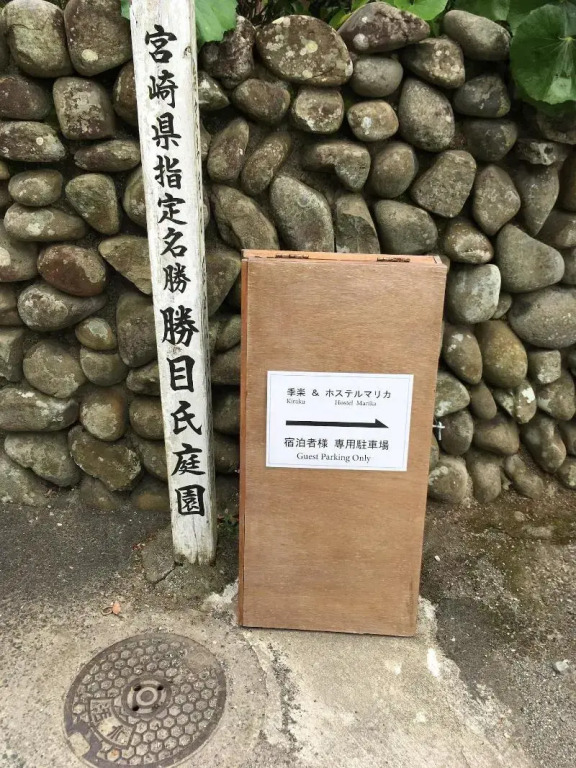 宮崎県指定名勝 勝目氏庭園
季楽 & ホステルマリカ
Kiraku Hostel Marika
宿泊者様 専用駐車場
Guest Parking Only